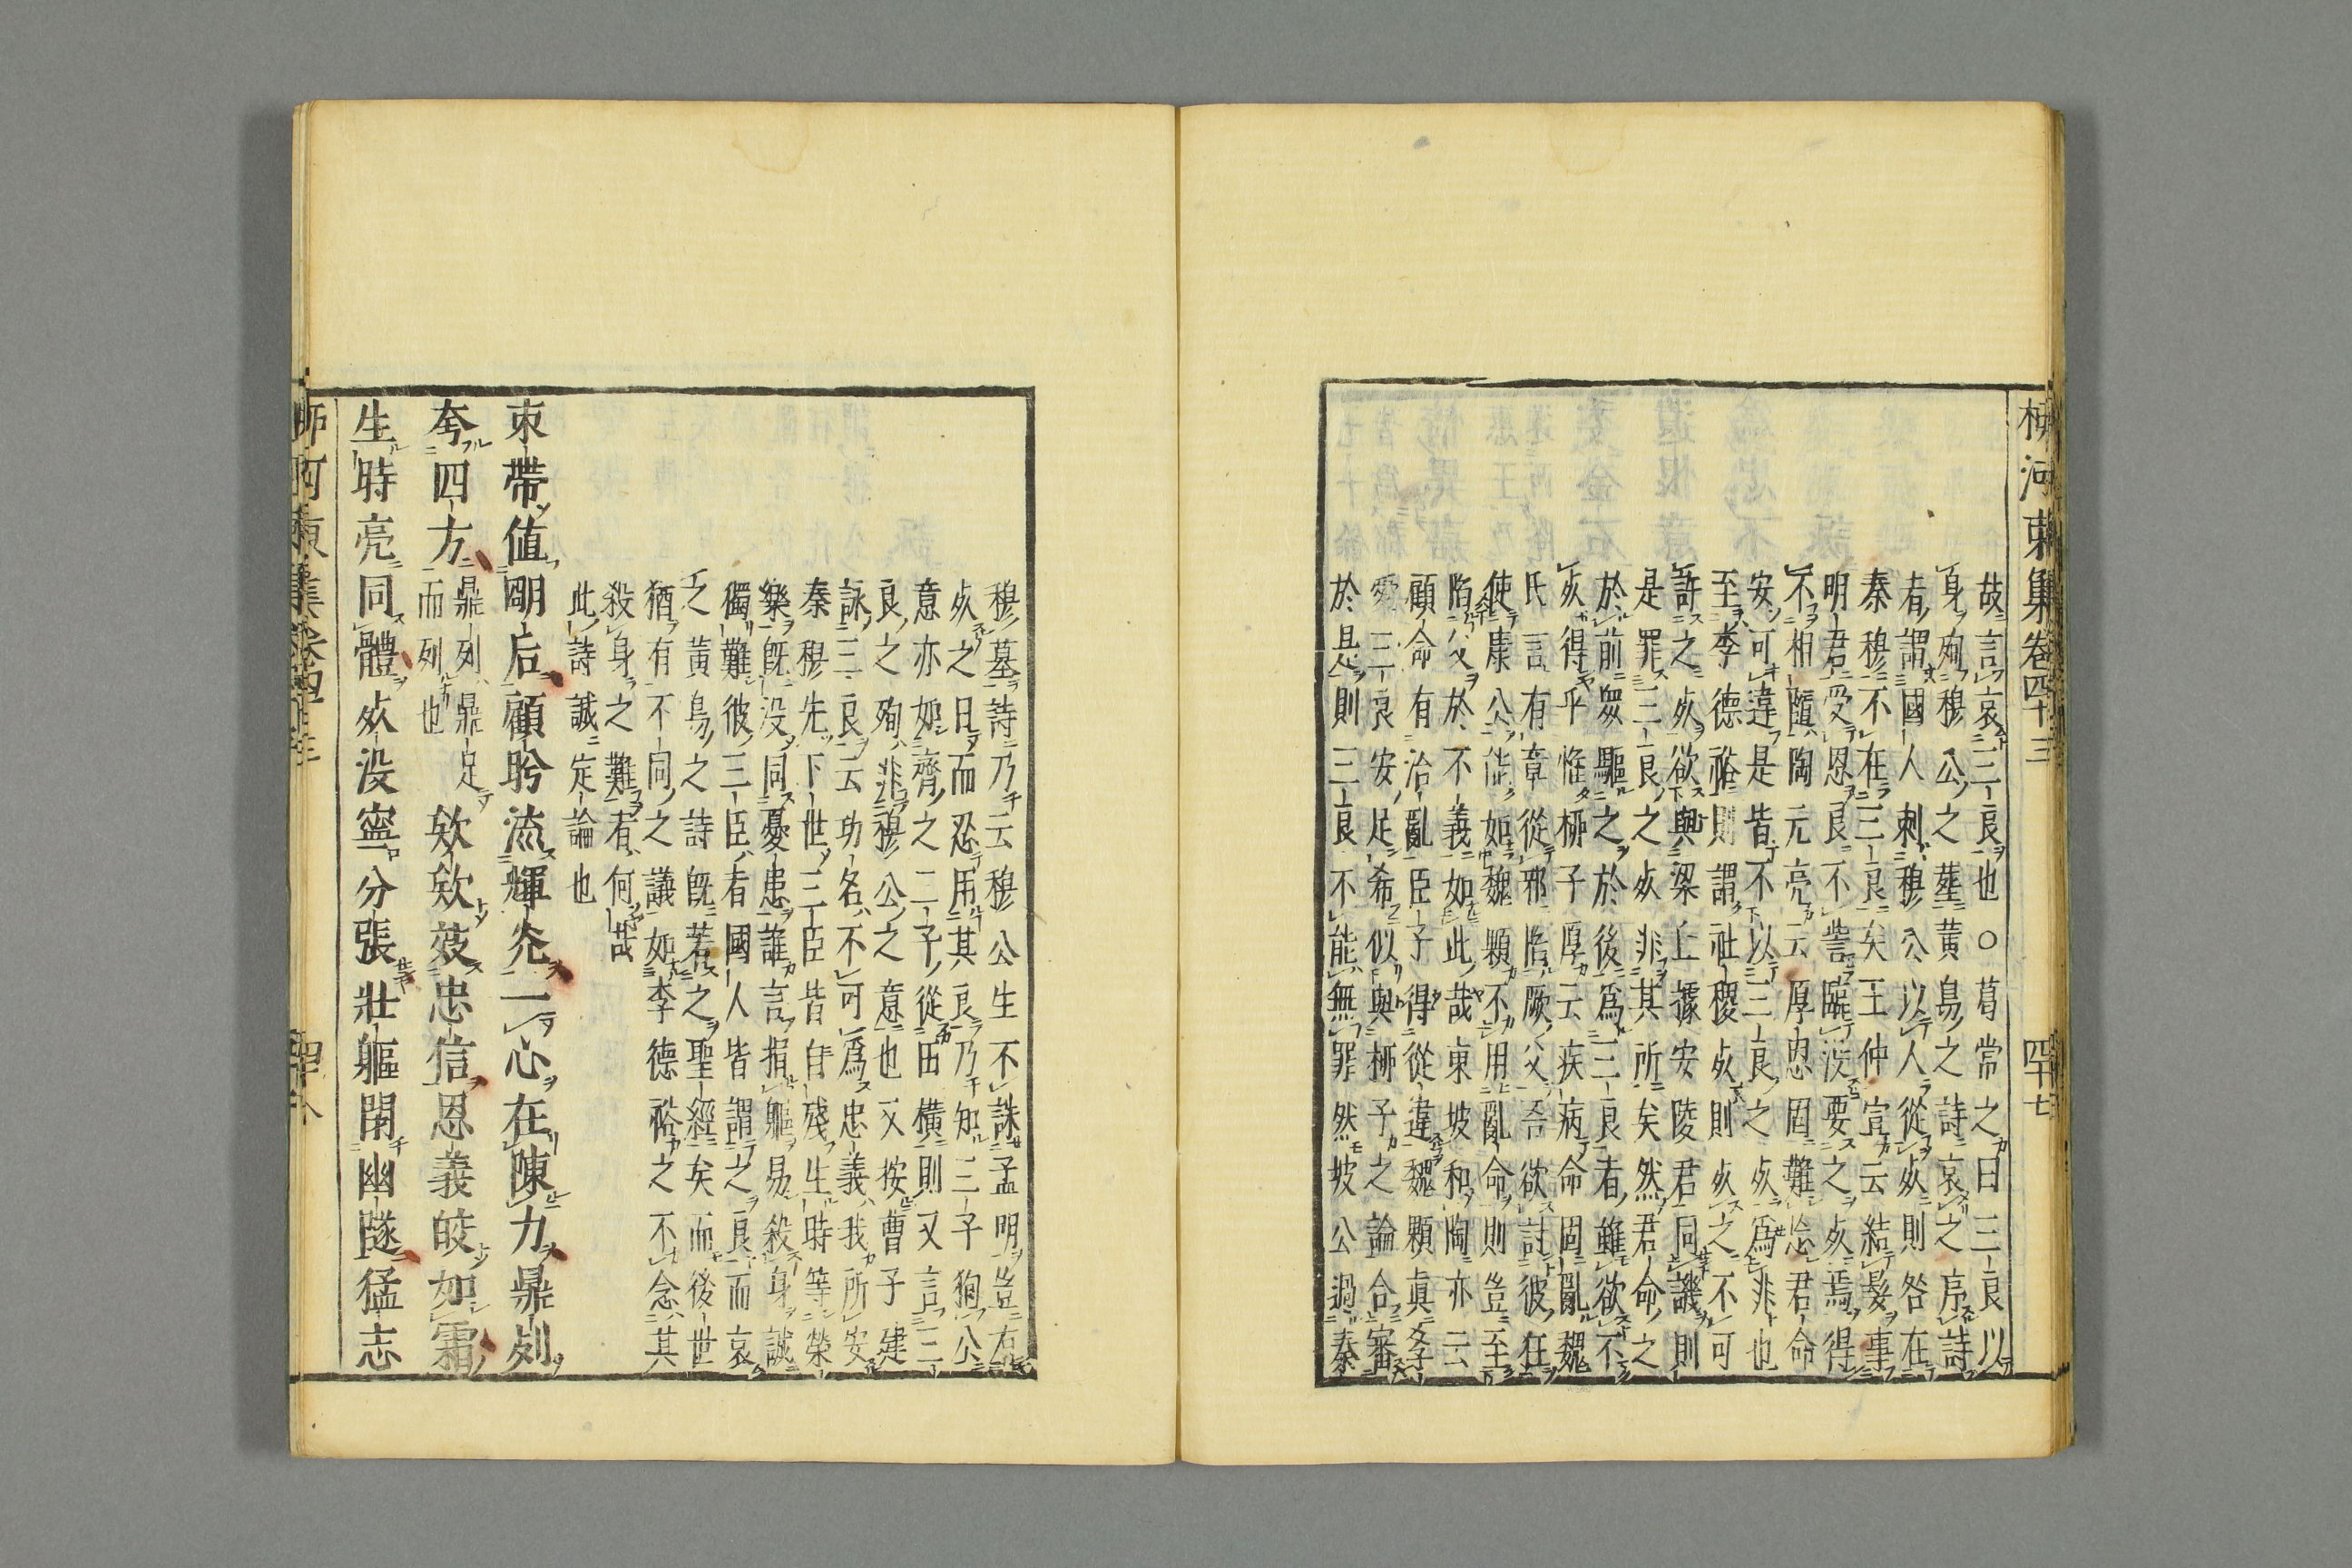 柳河東集卷四十三 四十七
故言哀三良也○葛常之曰三良以
身殉穆公之葬黄鳥之詩哀之序詩
者謂國人刺穆公以人從死則咎在
秦穆不在三良矣王仲宣云結髮事
明君受恩良不訾臨没要之死焉得
不相隨陶元亮云厚恩固難忘君命
安可違是皆不以三良之死爲非也
至李德裕則謂社稷死則死之不可
許之死欲與梁丘據安陵君同譏則
是罪三良之死非其所矣然君命之
於前衆驅之於後爲三良者雖欲不
死得乎惟柳子厚云疾病命固亂魏
氏言有章從邪陷厥父吾欲討彼狂
使康公能如魏顆不用亂命則豈至
陷父於不義如此哉東坡和陶亦云
顧命有治亂臣子得從違魏顆真孝
愛三良安足希似與柳子之論合審
於是則三良不能無罪然坡公過秦
穆墓詩乃云穆公生不誅孟明豈有
死之日而忍用其良乃知三子殉公
意亦如齊之二子從田橫則又言三
良之殉非穆公之意也又按曹子建
詠三良云功名不可爲忠義我所安
秦穆先下世三臣皆自殘生時等榮
樂既没同憂患誰言捐軀易殺身誠
獨難彼三臣者國人皆謂之良而哀
之黄鳥之詩既若之聖經矣而後世
猶有不同之議如李德裕之不念其
殺身之難者何哉
此詩誠定論也
束帶值明后顧盼流輝光一心在陳力鼎列
夸四方鼎列鼎足而列也欸欸效忠信恩義皎如霜
生時亮同體死没寧分張壯軀閉幽隧猛志
柳河東集卷四十三 四十八